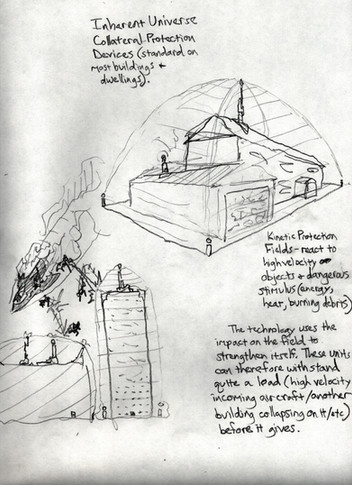 Inherent Universe
Collateral Protection
Devices (standard on
most buildings &
dwellings).
Kinetic Protection
Fields - react to
high velocity
objects & dangerous
stimulus (energy,
heat, burning debris)
The technology uses the
impact on the field to
strengthen itself. These units
can therefore withstand
quite a load (high velocity
incoming aircraft/another
building collapsing on it/etc)
before it gives.